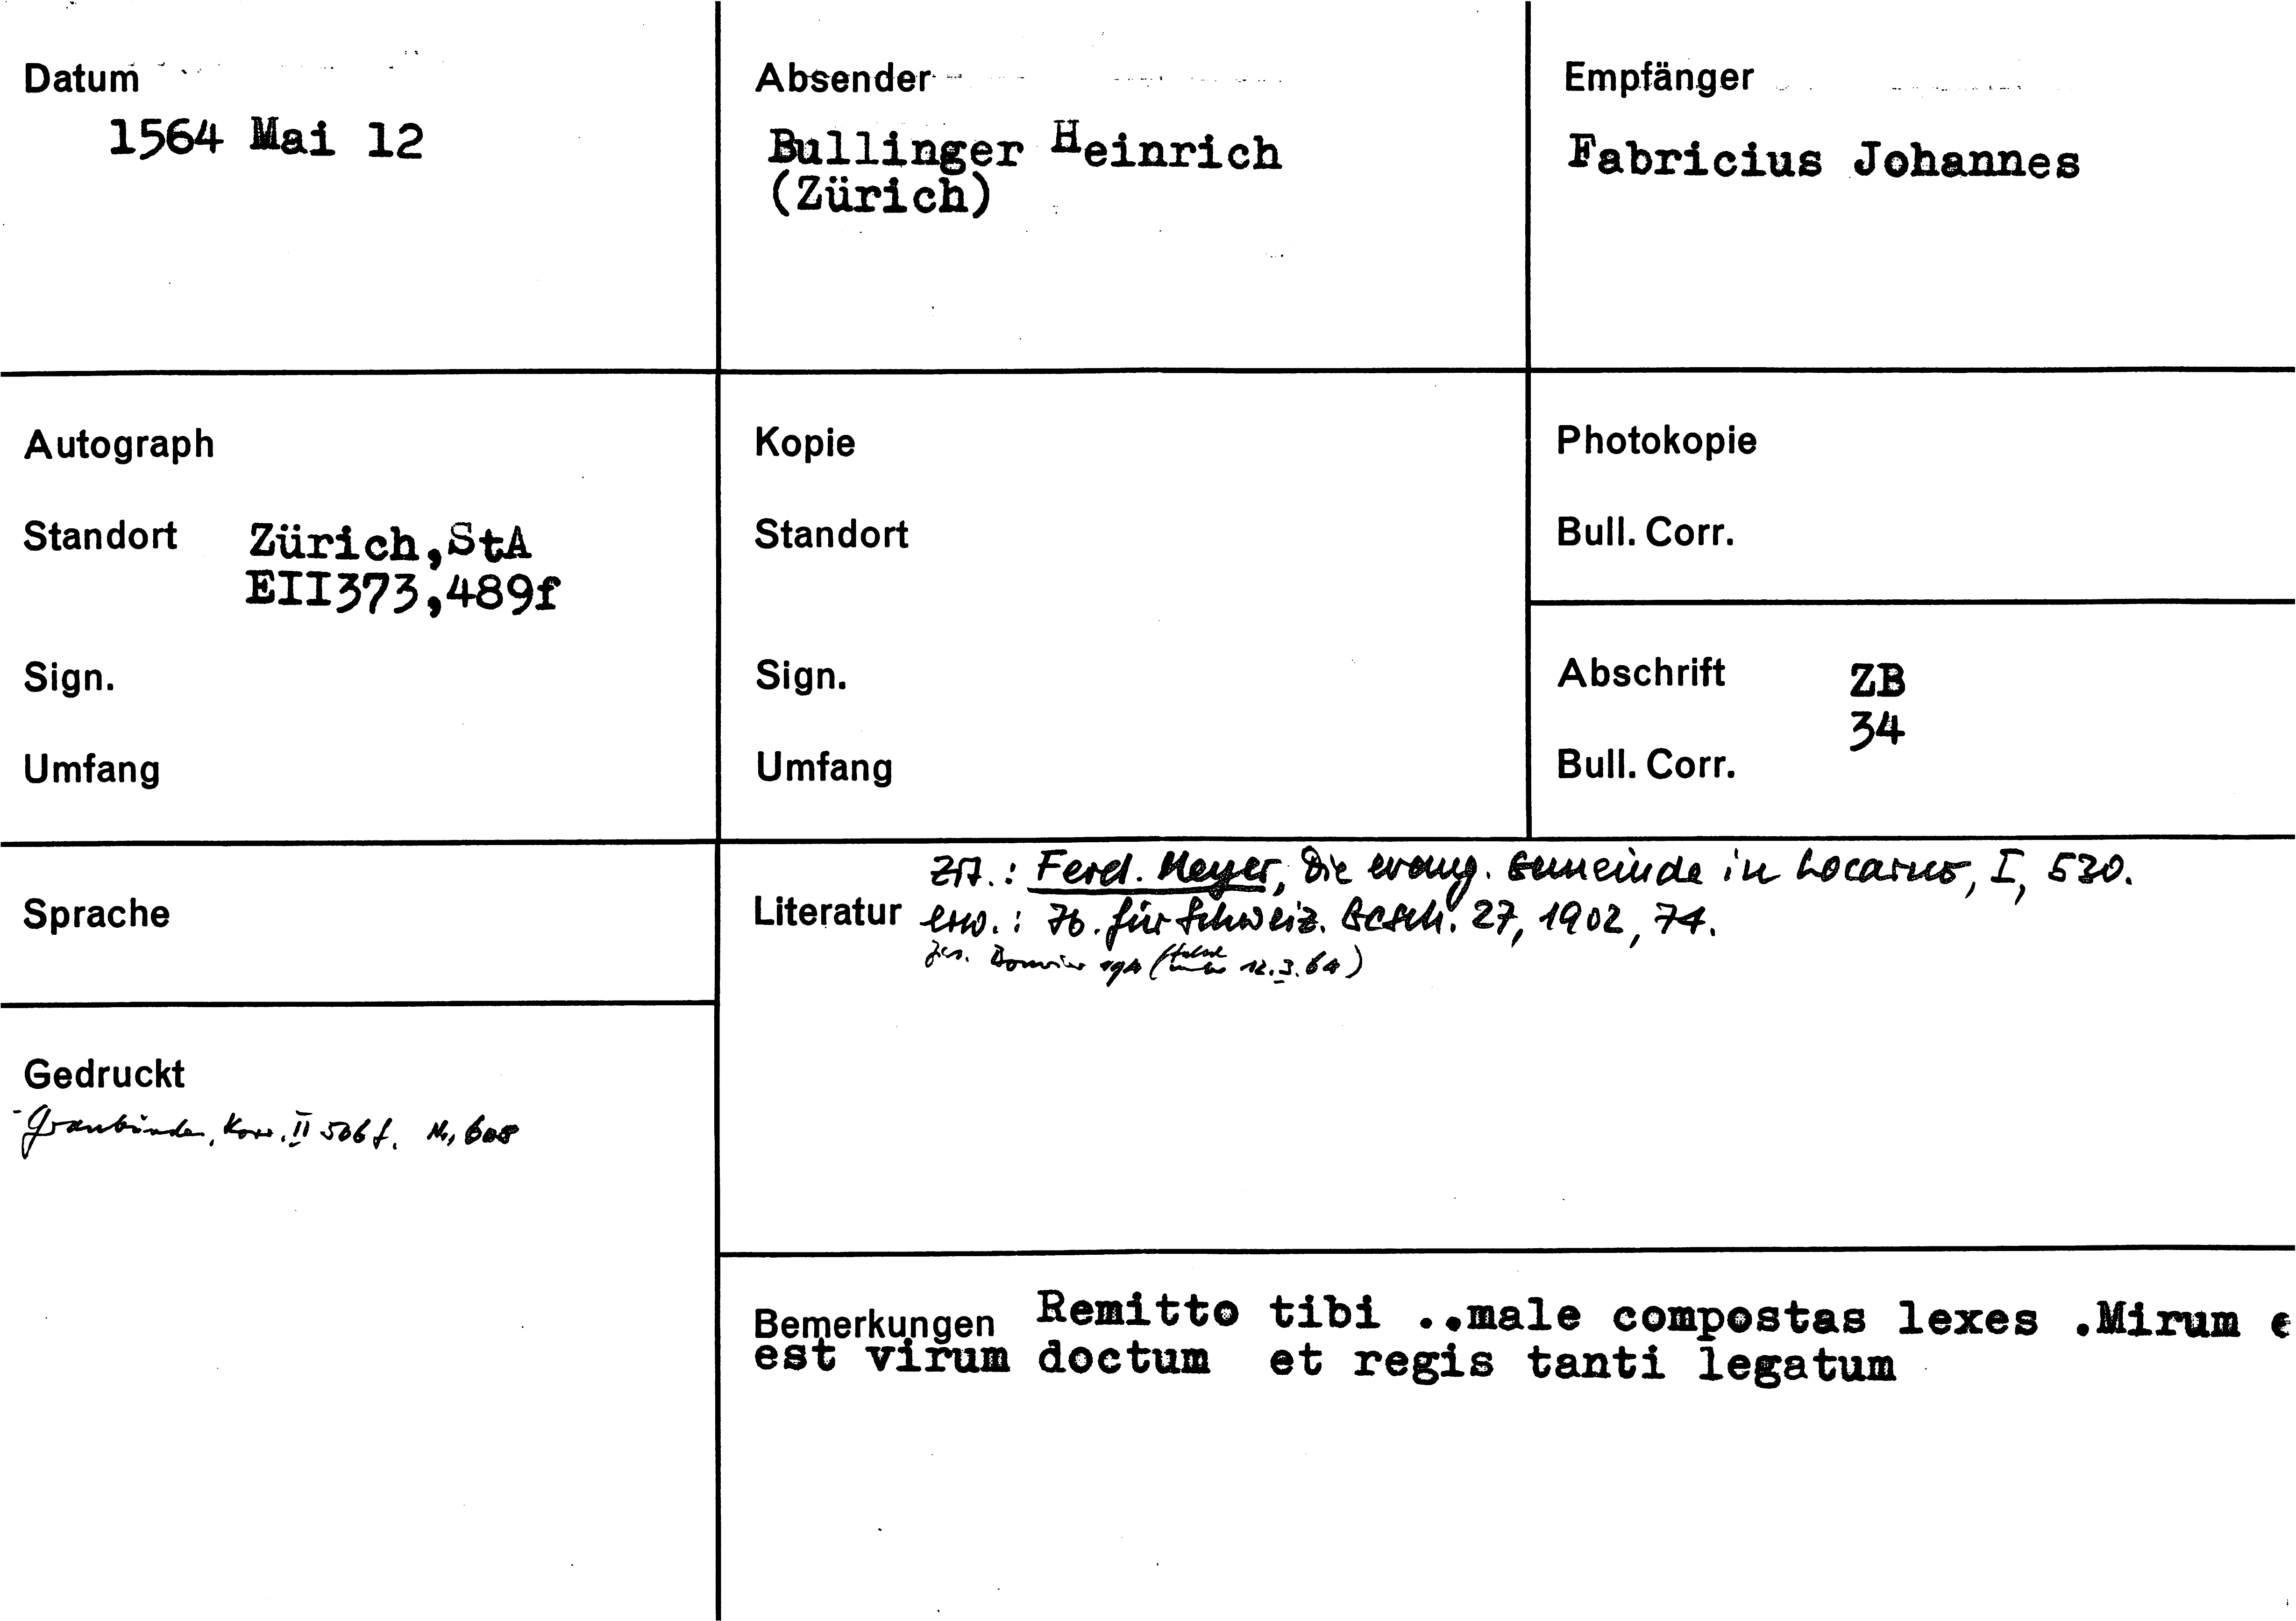 Datum
1564 Mai 12
Absender
Bullinger Heinrich
(Zürich)
Empfänger
Fabricius Johannes
Autograph
Standort Zürich,StA
EII373,489f
Sign.
Umfang
Kopie
Standort
Sign.
Umfang
Photokopie
Bull. Corr.
Abschrift ZB
34
Bull. Corr.
Sprache
Gedruckt
- Graubünden, Korr. II 506 f. Nr. 608
Zit.: Ferd. Meyer, Die evang. Gemeinde in Locarno, I, 530.
Literatur erw.: Jb. für Schweiz. Gesch. 27, 1902, 74.
Bouvier 194 (falsch unter 12.3.64)
Bemerkungen Remitto tibi ..male compostas lexes .Mirum e
est virum doctum et regis tanti legatum